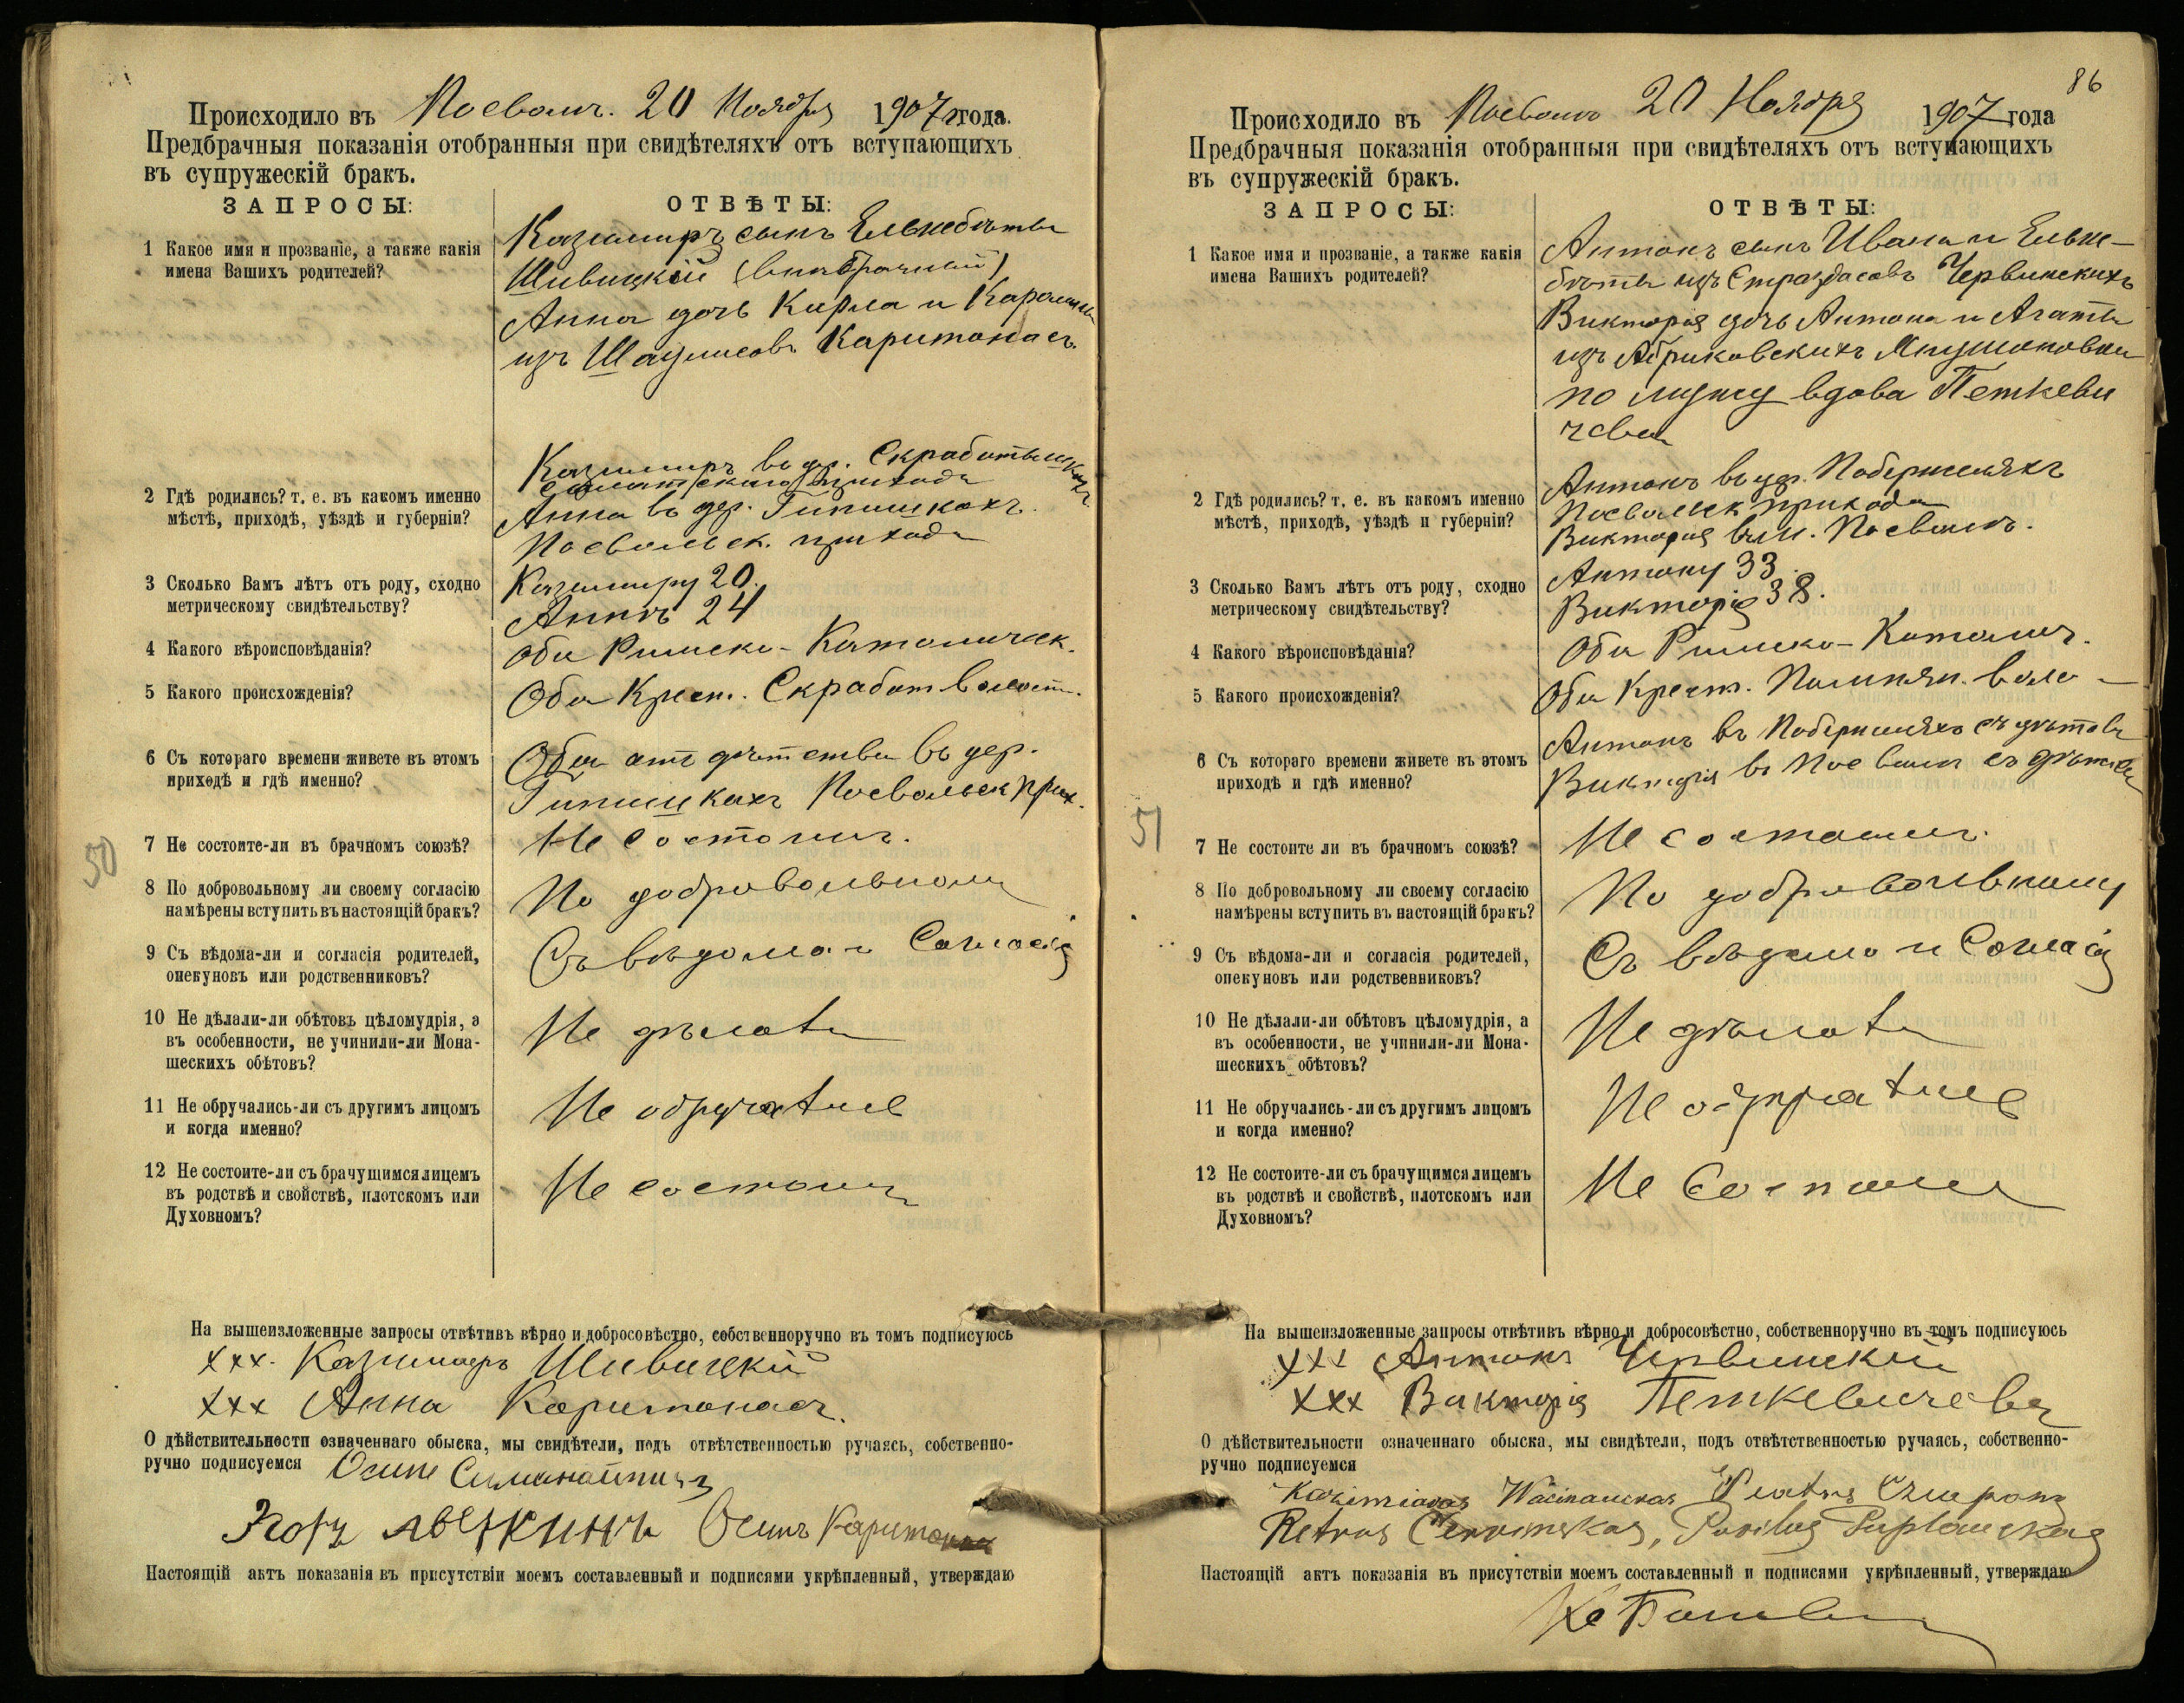 Происходило въ Посволѣ. 20 Ноября 1907 года.
Предбрачныя показанія отобранныя при свидѣтеляхъ отъ вступающихъ
въ супружескій бракъ.
ЗАПРОСЫ:
ОТВѢТЫ:
1 Какое имя и прозваніе, а также какія
имена Вашихъ родителей?
Казимиръ сынъ Ельжбѣты
Шивицкій (внѣбрачный)
Анна дочь Карла и Каролины
изъ Шаулисовъ Каритонасъ.
2 Гдѣ родились? т. е. въ какомъ именно
мѣстѣ, приходѣ, уѣздѣ и губерніи?
Казимиръ въ др.
прихода
Анна въ дер. Гипишкахъ.
Посвольск. прихода
3 Сколько Вамъ лѣтъ отъ роду, сходно
метрическому свидѣтельству?
Казимиру 20.
Аннѣ 24
4 Какого вѣроисповѣданія?
Оба Римско-Католическ.
5 Какого происхожденія?
Оба Крест. Скработ волост.
6 Съ котораго времени живете въ этомъ
приходѣ и гдѣ именно?
Оба отъ дѣтства въ дер.
Гипишкахъ Посвольск прих.
7 Не состоите-ли въ брачномъ союзѣ?
Не состоимъ.
8 По добровольному ли своему согласію
намѣрены вступить въ настоящій бракъ?
По добровольному
9 Съ вѣдома-ли и согласія родителей,
опекуновъ или родственниковъ?
Съ вѣдома и Согласія
10 Не дѣлали-ли обѣтовъ цѣломудрія, а
въ особенности, не учинили-ли Мона-
шескихъ обѣтовъ?
Не дѣлали
11 Не обручались-ли съ другимъ лицомъ
и когда именно?
Не обручались
12 Не состоите-ли съ брачущимся лицемъ
въ родствѣ и свойствѣ, плотскомъ или
Духовномъ?
Не состоимъ
На вышеизложенные запросы отвѣтивъ вѣрно и добросовѣстно, собственноручно въ томъ подписуюсь
ххх. Казимиръ Шивицкій
ххх Анна Каритонасъ.
О дѣйствительности означеннаго обыска, мы свидѣтели, подъ отвѣтственностью ручаясь, собственно-
ручно подписуемся Осипъ
Осипъ Каритонас
Настоящій актъ показанія въ присутствіи моемъ составленный и подписями укрѣпленный, утверждаю
50
86
Происходило въ Посволѣ 20 Ноября 1907 года
Предбрачныя показанія отобранныя при свидѣтеляхъ отъ вступающихъ
въ супружескій бракъ.
ЗАПРОСЫ:
ОТВѢТЫ:
1 Какое имя и прозваніе, а также какія
имена Вашихъ родителей?
Антонъ сынъ Ивана и Ельж-
бѣты изъ Страздасовъ Червинскихъ
Викторія дочь Антона и Агаты
изъ
по мужу вдова Петкеви
чева
2 Гдѣ родились? т. е. въ какомъ именно
мѣстѣ, приходѣ, уѣздѣ и губерніи?
Антонъ въ др.
Посвольск прихода
Викторія въ м. Посволѣ.
3 Сколько Вамъ лѣтъ отъ роду, сходно
метрическому свидѣтельству?
Антону 33.
Викторіи 38.
4 Какого вѣроисповѣданія?
Оба Римско-Католич.
5 Какого происхожденія?
Оба Крест. волo-
6 Съ котораго времени живете въ этомъ
приходѣ и гдѣ именно?
Антонъ въ съ дѣтства
Викторія въ Посволѣ съ дѣтства
51
7 Не состоите ли въ брачномъ союзѣ?
Не состоимъ.
8 По добровольному ли своему согласію
намѣрены вступить въ настоящій бракъ?
По добровольному
9 Съ вѣдома-ли и согласія родителей,
опекуновъ или родственниковъ?
Съ вѣдома и Согласія
10 Не дѣлали-ли обѣтовъ цѣломудрія, а
въ особенности, не учинили-ли Мона-
шескихъ обѣтовъ?
Не дѣлали
11 Не обручались-ли съ другимъ лицомъ
и когда именно?
Не обручались
12 Не состоите-ли съ брачущимся лицемъ
въ родствѣ и свойствѣ, плотскомъ или
Духовномъ?
Не Состоимъ
На вышеизложенные запросы отвѣтивъ вѣрно и добросовѣстно, собственноручно въ томъ подписуюсь
ххх Антонъ Червинскій
ххх Викторія Петкевичева
О дѣйствительности означеннаго обыска, мы свидѣтели, подъ отвѣтственностью ручаясь, собственно-
ручно подписуемся
Petras Červinskas, Povilas
Настоящій актъ показанія въ присутствіи моемъ составленный и подписями укрѣпленный, утверждаю